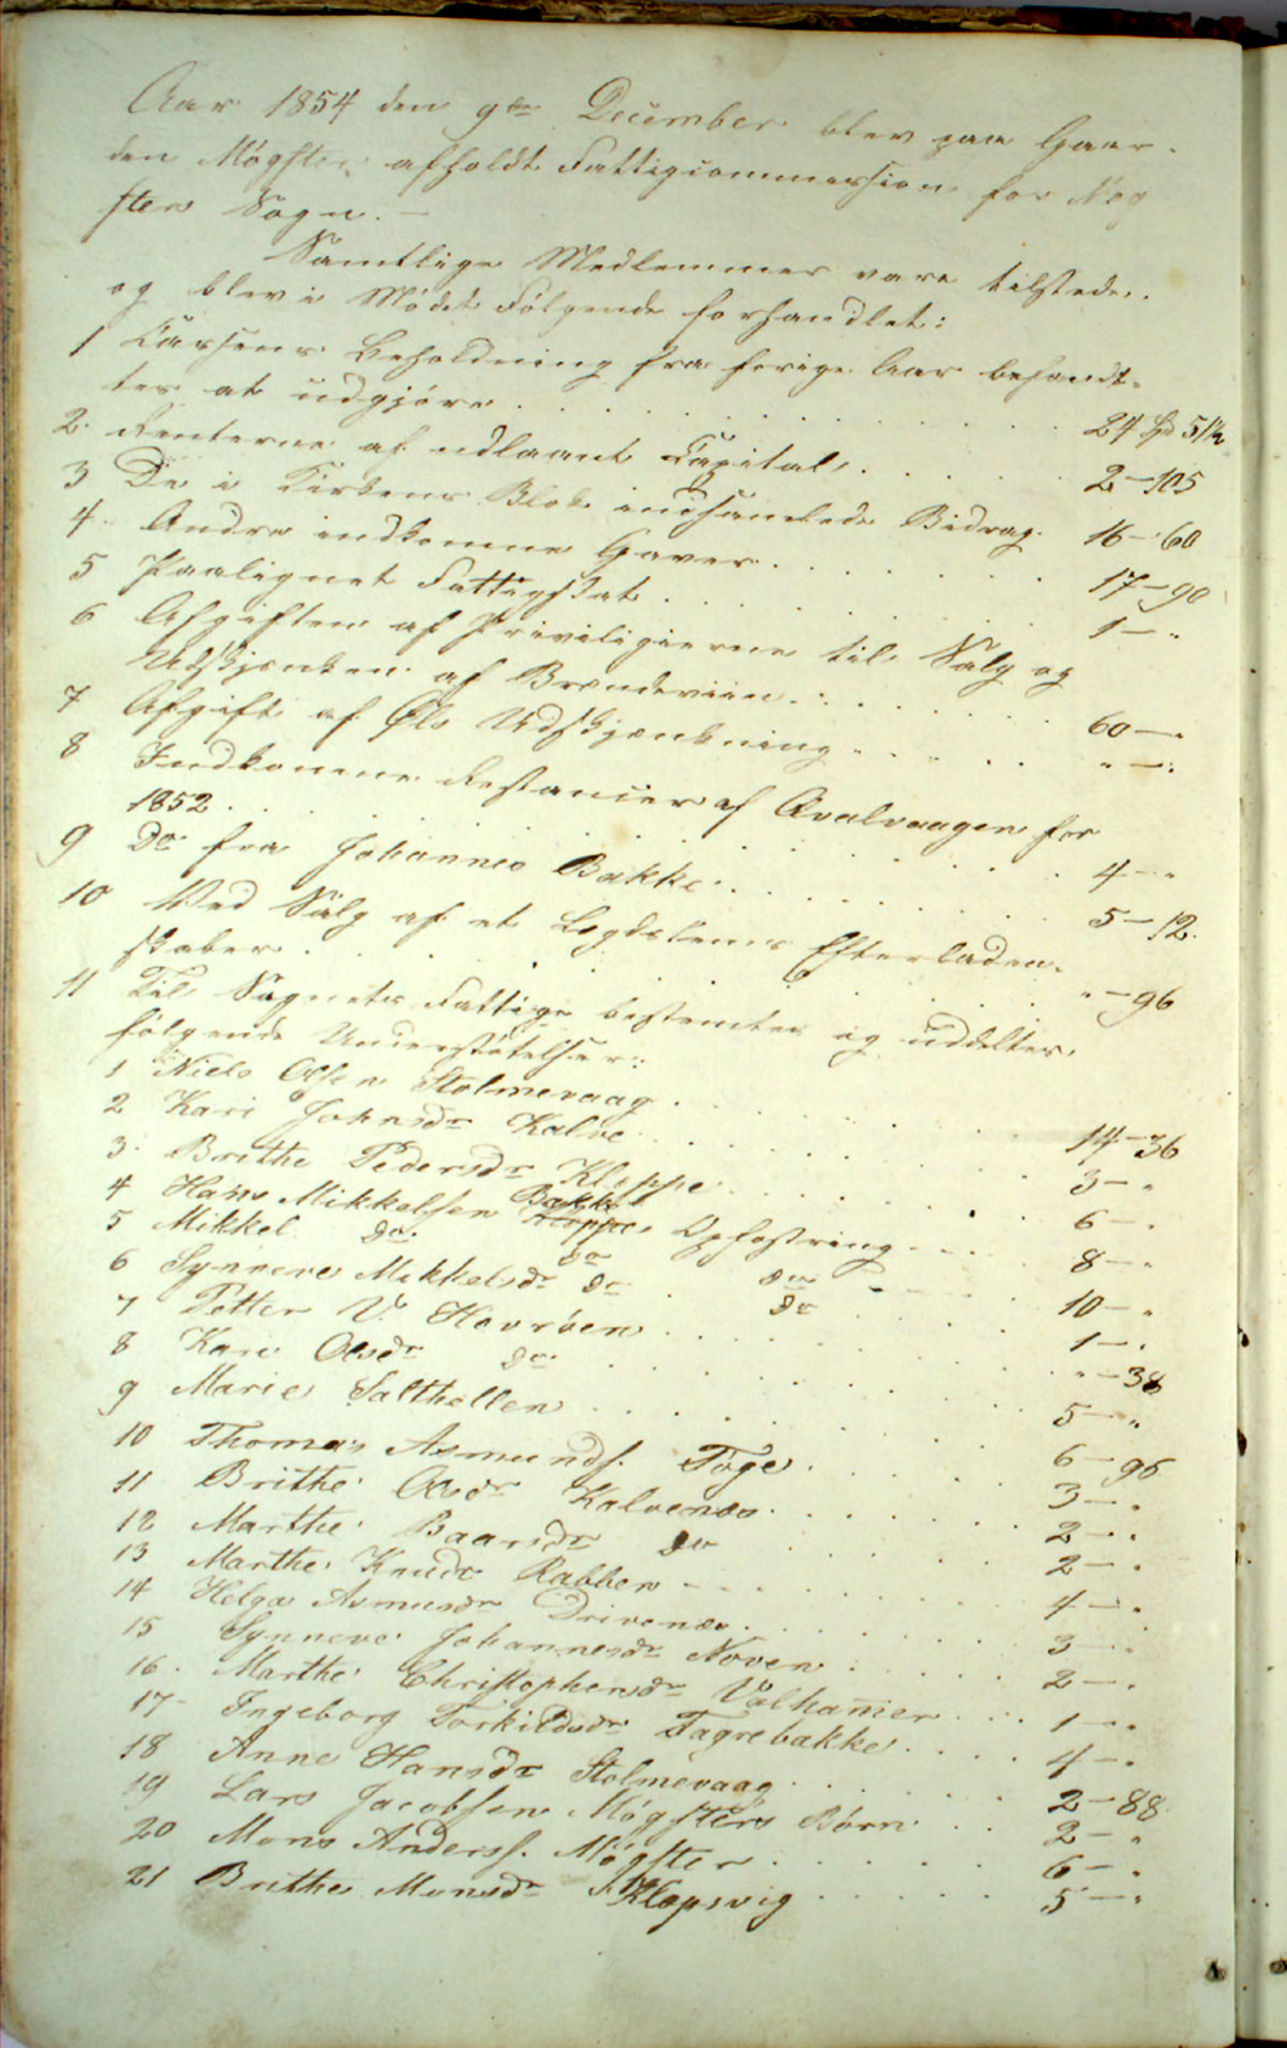 Aar 1854 den 9de December blev paa Gaar-
den Møgster afholdt Fattigcommission for Møg
ster Sogn. -
Samtlige Medlemmer vare tilstede.
og blev i Mødet Følgende forhandlet:
1 Cassens Beholdning fra forige Aar befandt-
tes at udgjøre . . . . . . . . 24 Spd 51½
2. Renterne af udlaant Capital . . . . 2 - 105
3 De i Kirkens Blok indsamlede Bidrag. 16 - 60
4. Andre indkomne Gaver . . . . . . 17 - 90
5 Paalignet Fattigskat . . . . . . 1 - "
6 Afgiften af Priviligierne til Salg og
Udskjænken af Brændeviin . . . . . . 60 - "
7 Afgift af Øls Udskjænkning . . . . . " - "
8 Indkomne Restancier af Qvalvaagen for
1852 . . . . . . . . 4 - "
9 Do fra Johannes Bakke . . . . . . 5 - 12.
10 Ved Salg af et Lægdslems Efterladen-
skaber . . . . . . . . " - 96
11 Til Sognets Fattige bestemtes og uddeltes
følgende Understøttelser:
1 Niels Olsen Stolmevaag . . . . . . 14 - 36
2 Kari Johnsdr Kalve . . . . . . 3 - "
3. Brithe Pedersdr Kleppe . . . . . . 6 - "
4 Hans Mikkelsen Bakke Opfostring . . . . 8 - "
5 Mikkel do do do . . . . 10 - "
6 Synneve Mikkelsdr do do . . . . 1 - "
7 Petter V. Hevrøen . . . . . . " - 38
8 Kari Olsdr do . . . . . . 5 - "
9 Marie Salthellen . . . . . . 6 - 96
10 Thomas Asmunds. Føge . . . . . 3 - "
11 Brithe Olsdr Kalvenes . . . . . . 2 - "
12 Marthe Baardsdr do . . . . . 2 - "
13 Marthe Knudsdr Rabben . . . . . 4 - "
14 Helga Asmundsdr Drivenes . . . . . 3 - "
15 Synneve Johannesdr Noven . . . . . 2 - "
16. Marthe Christophersdr Valhammer . . . 1 - "
17 Ingeborg Torkildsdr Fagrebakke . . . . 4 - "
18 Anne Hansdr Stolmevaag . . . . . 2 - 88
19 Lars Jacobsen Møgsters Børn . . 2 - "
20 Mons Anderss. Møgster . . . . . 6 - "
21 Brithe Monsdr Klepsvig . . . . . 5 - "